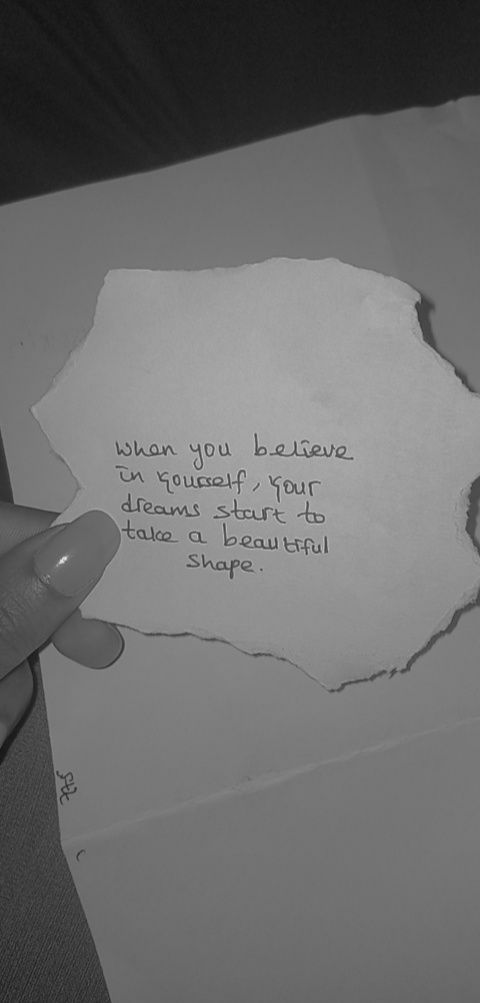 when you believe
in yourself, your
dreams start to
take a beautiful
shape.